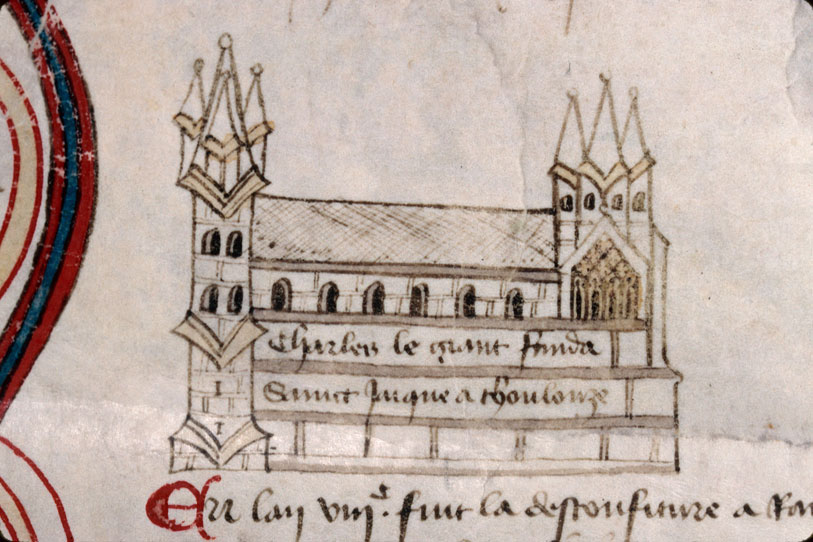 Charles le grant funda
Sainct Jaque a tholouze
En lan viiiᶜ. fut la desconfiture a Ron